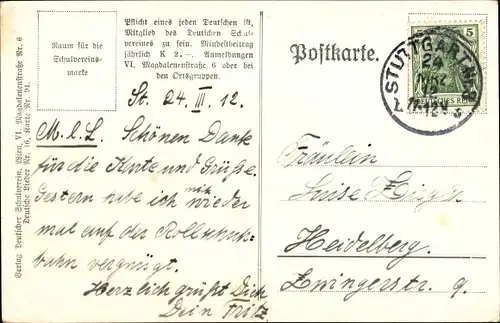 Verlag Deutscher Schulverein, Wien, VI. Magdalenenstraße Nr. 6
Deutsche Lieder Nr. 16, Karte Nr. 91.
Raum für die
Schulvereins-
marke
Pflicht eines jeden Deutschen ist,
Mitglied des Deutschen Schul-
vereines zu sein. Mindestbeitrag
jährlich K 2.–. Anmeldungen
VI, Magdalenenstraße 6 oder bei
den Ortsgruppen.
St. 24. III. 12.
M. l. L. Schönen Dank
für die Karte und Grüße.
Gestern habe ich mich wieder
mal auf der Rollschuh-
bahn vergnügt.
Herzlich grüßt Dich
Dein Fritz
Postkarte.
5
DEUTSCHES REICH
STUTTGART
24
MRZ
12
11-12 V
Fräulein
Luise
Heidelberg.
Zwingerstr. 9.